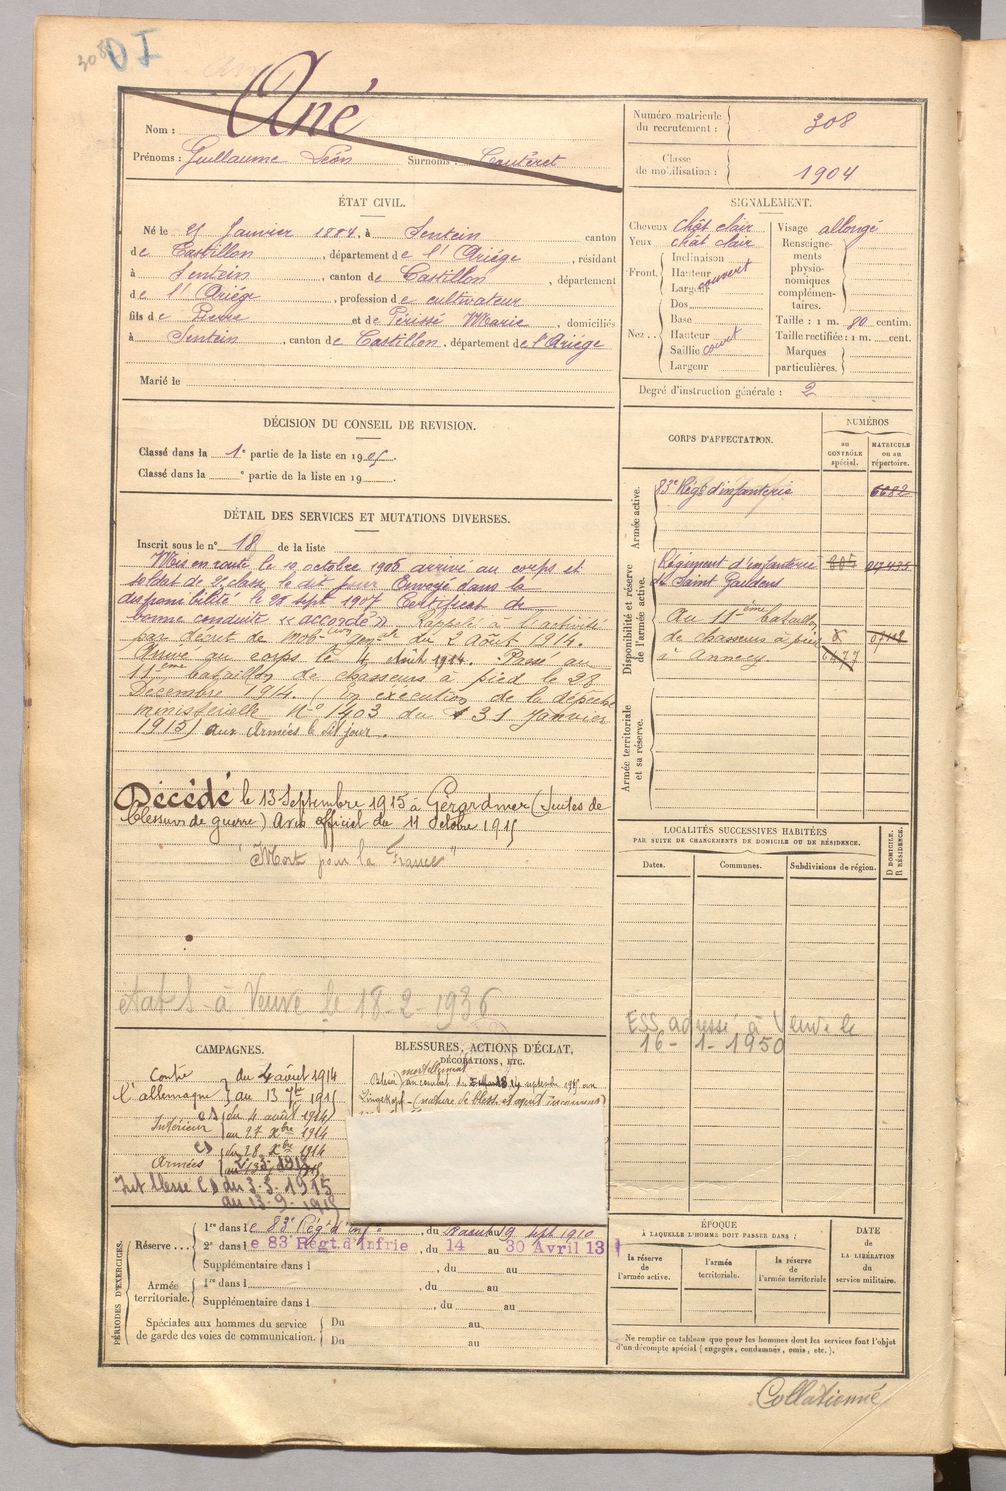 308 DI
Nom : Ané
Prénoms : Guillaume Léon Surnoms : Cauteret
Numéro matricule
du recrutement : 308
Classe
de mobilisation : 1904
ÉTAT CIVIL.
Né le Janvier 1884, à Sentein canton
de Castillon, département de l'Ariége, résidant
à Sentein, canton de Castillon, département
de l'Ariége, profession de cultivateur
fils de Pierre et de Périssé Marie, domiciliés
à Sentein, canton de Castillon, département de l'Ariége
Marié le
SIGNALEMENT.
Cheveux chât clair
Yeux chât clair
Front. Inclinaison
Hauteur
Largeur
couvert
Nez.. Dos
Base
Hauteur
Saillie court
Largeur
Visage allongé
Renseigne-
ments
physio-
nomiques
complémen-
taires.
Taille : 1 m. 80 centim.
Taille rectifiée : 1 m. cent.
Marques
particulières.
Degré d'instruction générale : 2
DÉCISION DU CONSEIL DE REVISION.
Classé dans la 1e partie de la liste en 1905.
Classé dans la e partie de la liste en 19
DÉTAIL DES SERVICES ET MUTATIONS DIVERSES.
Inscrit sous le n° 18 de la liste
Mis en route le 10 octobre 1905 arrivé au corps et
soldat de 2e classe le dit jour Envoyé dans la
disponibilité le 28 sept 1907 Certificat de
bonne conduite « accordé » Rappelé à l'activité
par décret de mobtion génale du 2 Août 1914.
Arrivé au corps le 4 Août 1914. Passé au
11ème bataillon de chasseurs à pied le 28
Décembre 1914. (En exécution de la dépêche
ministérielle N° 1403 du 31 Janvier
1915) aux Armées le dit jour.
Décédé le 13 Septembre 1915 à Gérardmer (Suites de
blessures de guerre) Avis officiel du 11 Octobre 1915
"Mort pour la France"
à Veuve le 18-2-1936
CORPS D'AFFECTATION.
NUMÉROS
au
CONTRÔLE
spécial.
MATRICULE
ou au
répertoire.
Armée active.
83e Régt d'infanterie 6682
Disponibilité et réserve
de l'armée active.
Régiment d'infanterie
de Saint Gaudens
Au 11ème bataillon
de chasseurs à pied
à Annecy 6477
Armée territoriale
et sa réserve.
LOCALITÉS SUCCESSIVES HABITÉES
PAR SUITE DE CHANGEMENTS DE DOMICILE OU DE RÉSIDENCE.
Dates.
Communes.
Subdivisions de région.
D DOMICILE.
R RÉSIDENCE.
ESS adressé à Veuve le
16-1-1950
CAMPAGNES.
Contre du 4 août 1914
l'allemagne au 13 7bre 1915
Intérieur CS du 4 août 1914
au 27 Xbre 1914
Armées CD du 28 Xbre 1914
au 2.5.1915
Int blessé CD du 3.5.1915
au 13.9.1915
BLESSURES, ACTIONS D'ÉCLAT,
DÉCORATIONS, ETC.
Blessé mortellement au combat du septembre 1915 au
Lingekopf - (nature de bless. et agent inconnus)
PÉRIODES D'EXERCICES.
Réserve... 1re dans le 83e Rég. d'Infie, du 18 août au 9 sept 1910
2e dans le 83e Régt. d'Infrie, du 14 au 30 Avril 13
Supplémentaire dans l , du au
Armée
territoriale. 1re dans l , du au
Supplémentaire dans l , du au
Spéciales aux hommes du service
de garde des voies de communication. Du au
Du au
ÉPOQUE
À LAQUELLE L'HOMME DOIT PASSER DANS :
la réserve
de
l'armée active.
l'armée
territoriale.
la réserve
de
l'armée territoriale
DATE
de
LA LIBÉRATION
du
service militaire.
Ne remplir ce tableau que pour les hommes dont les services font l'objet
d'un décompte spécial (engagés, condamnés, omis, etc.).
Collationné